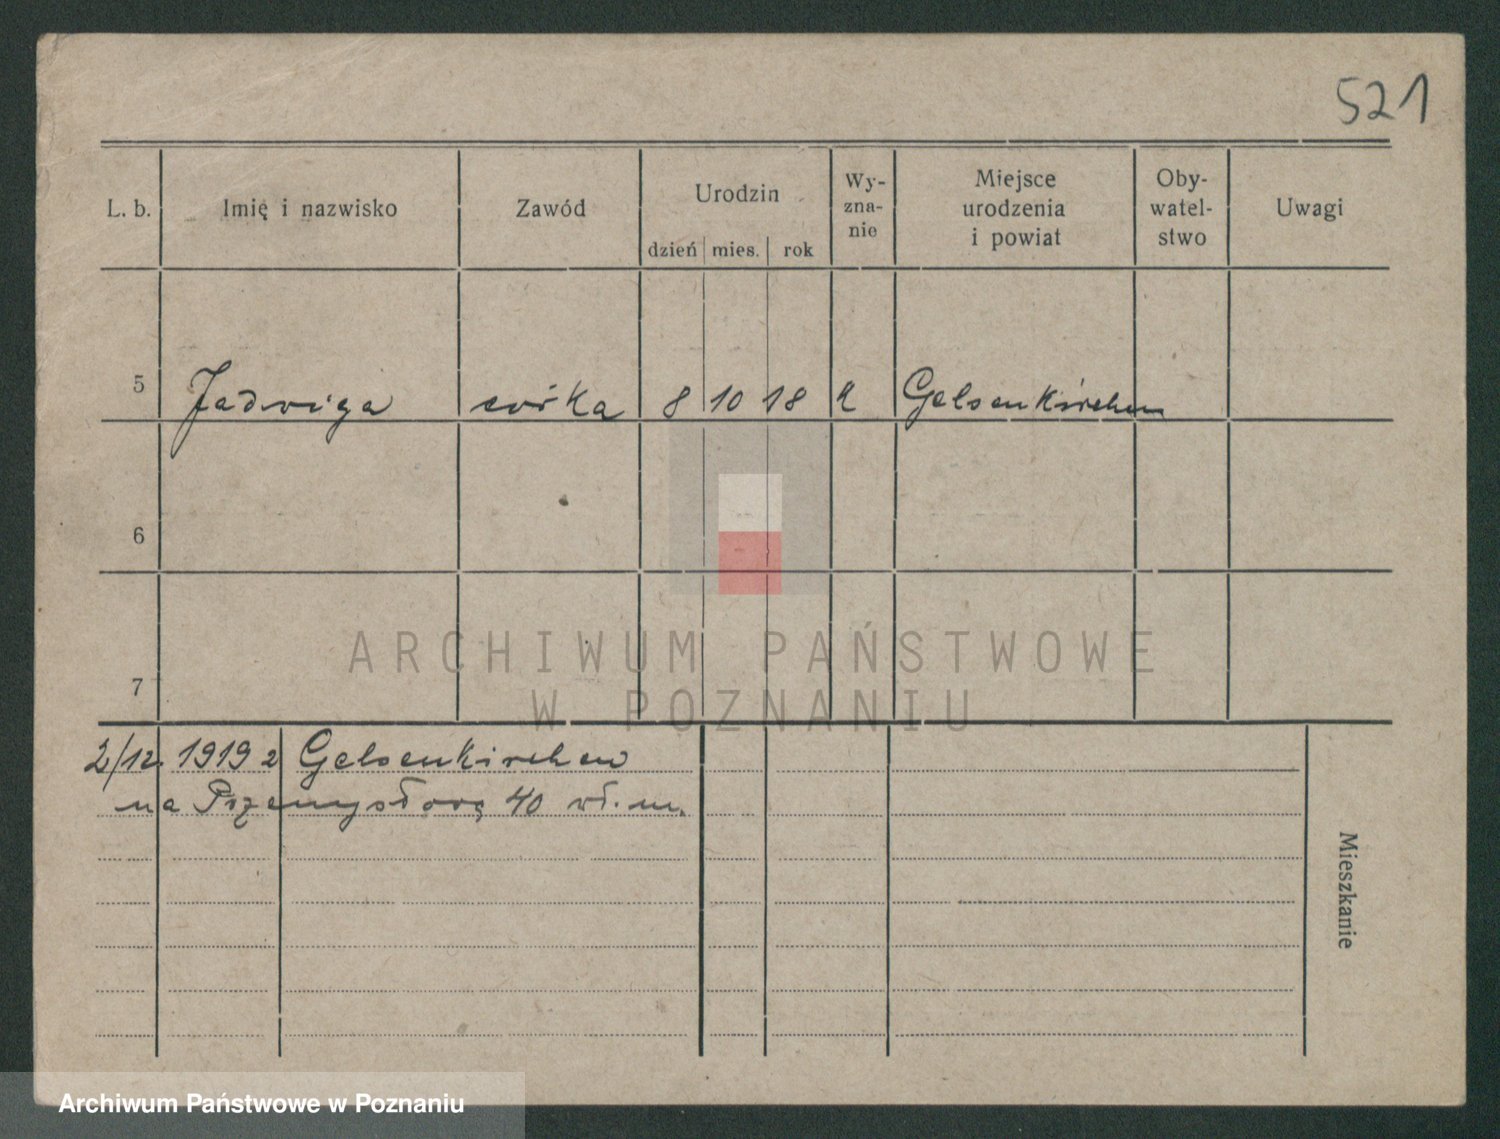 521
L. b. Imię i nazwisko Zawód Urodzin Wy-zna-nie Miejsce urodzenia i powiat Oby-watel-stwo Uwagi
dzień mies. rok
5 Jadwiga córka 8 10 18 k Gelsenkirchen
6
7
ARCHIWUM PAŃSTWOWE
W POZNANIU
2/12. 1919 z Gelsenkirchen
na Przemysłową 40 wł. m.
Mieszkanie
Archiwum Państwowe w Poznaniu